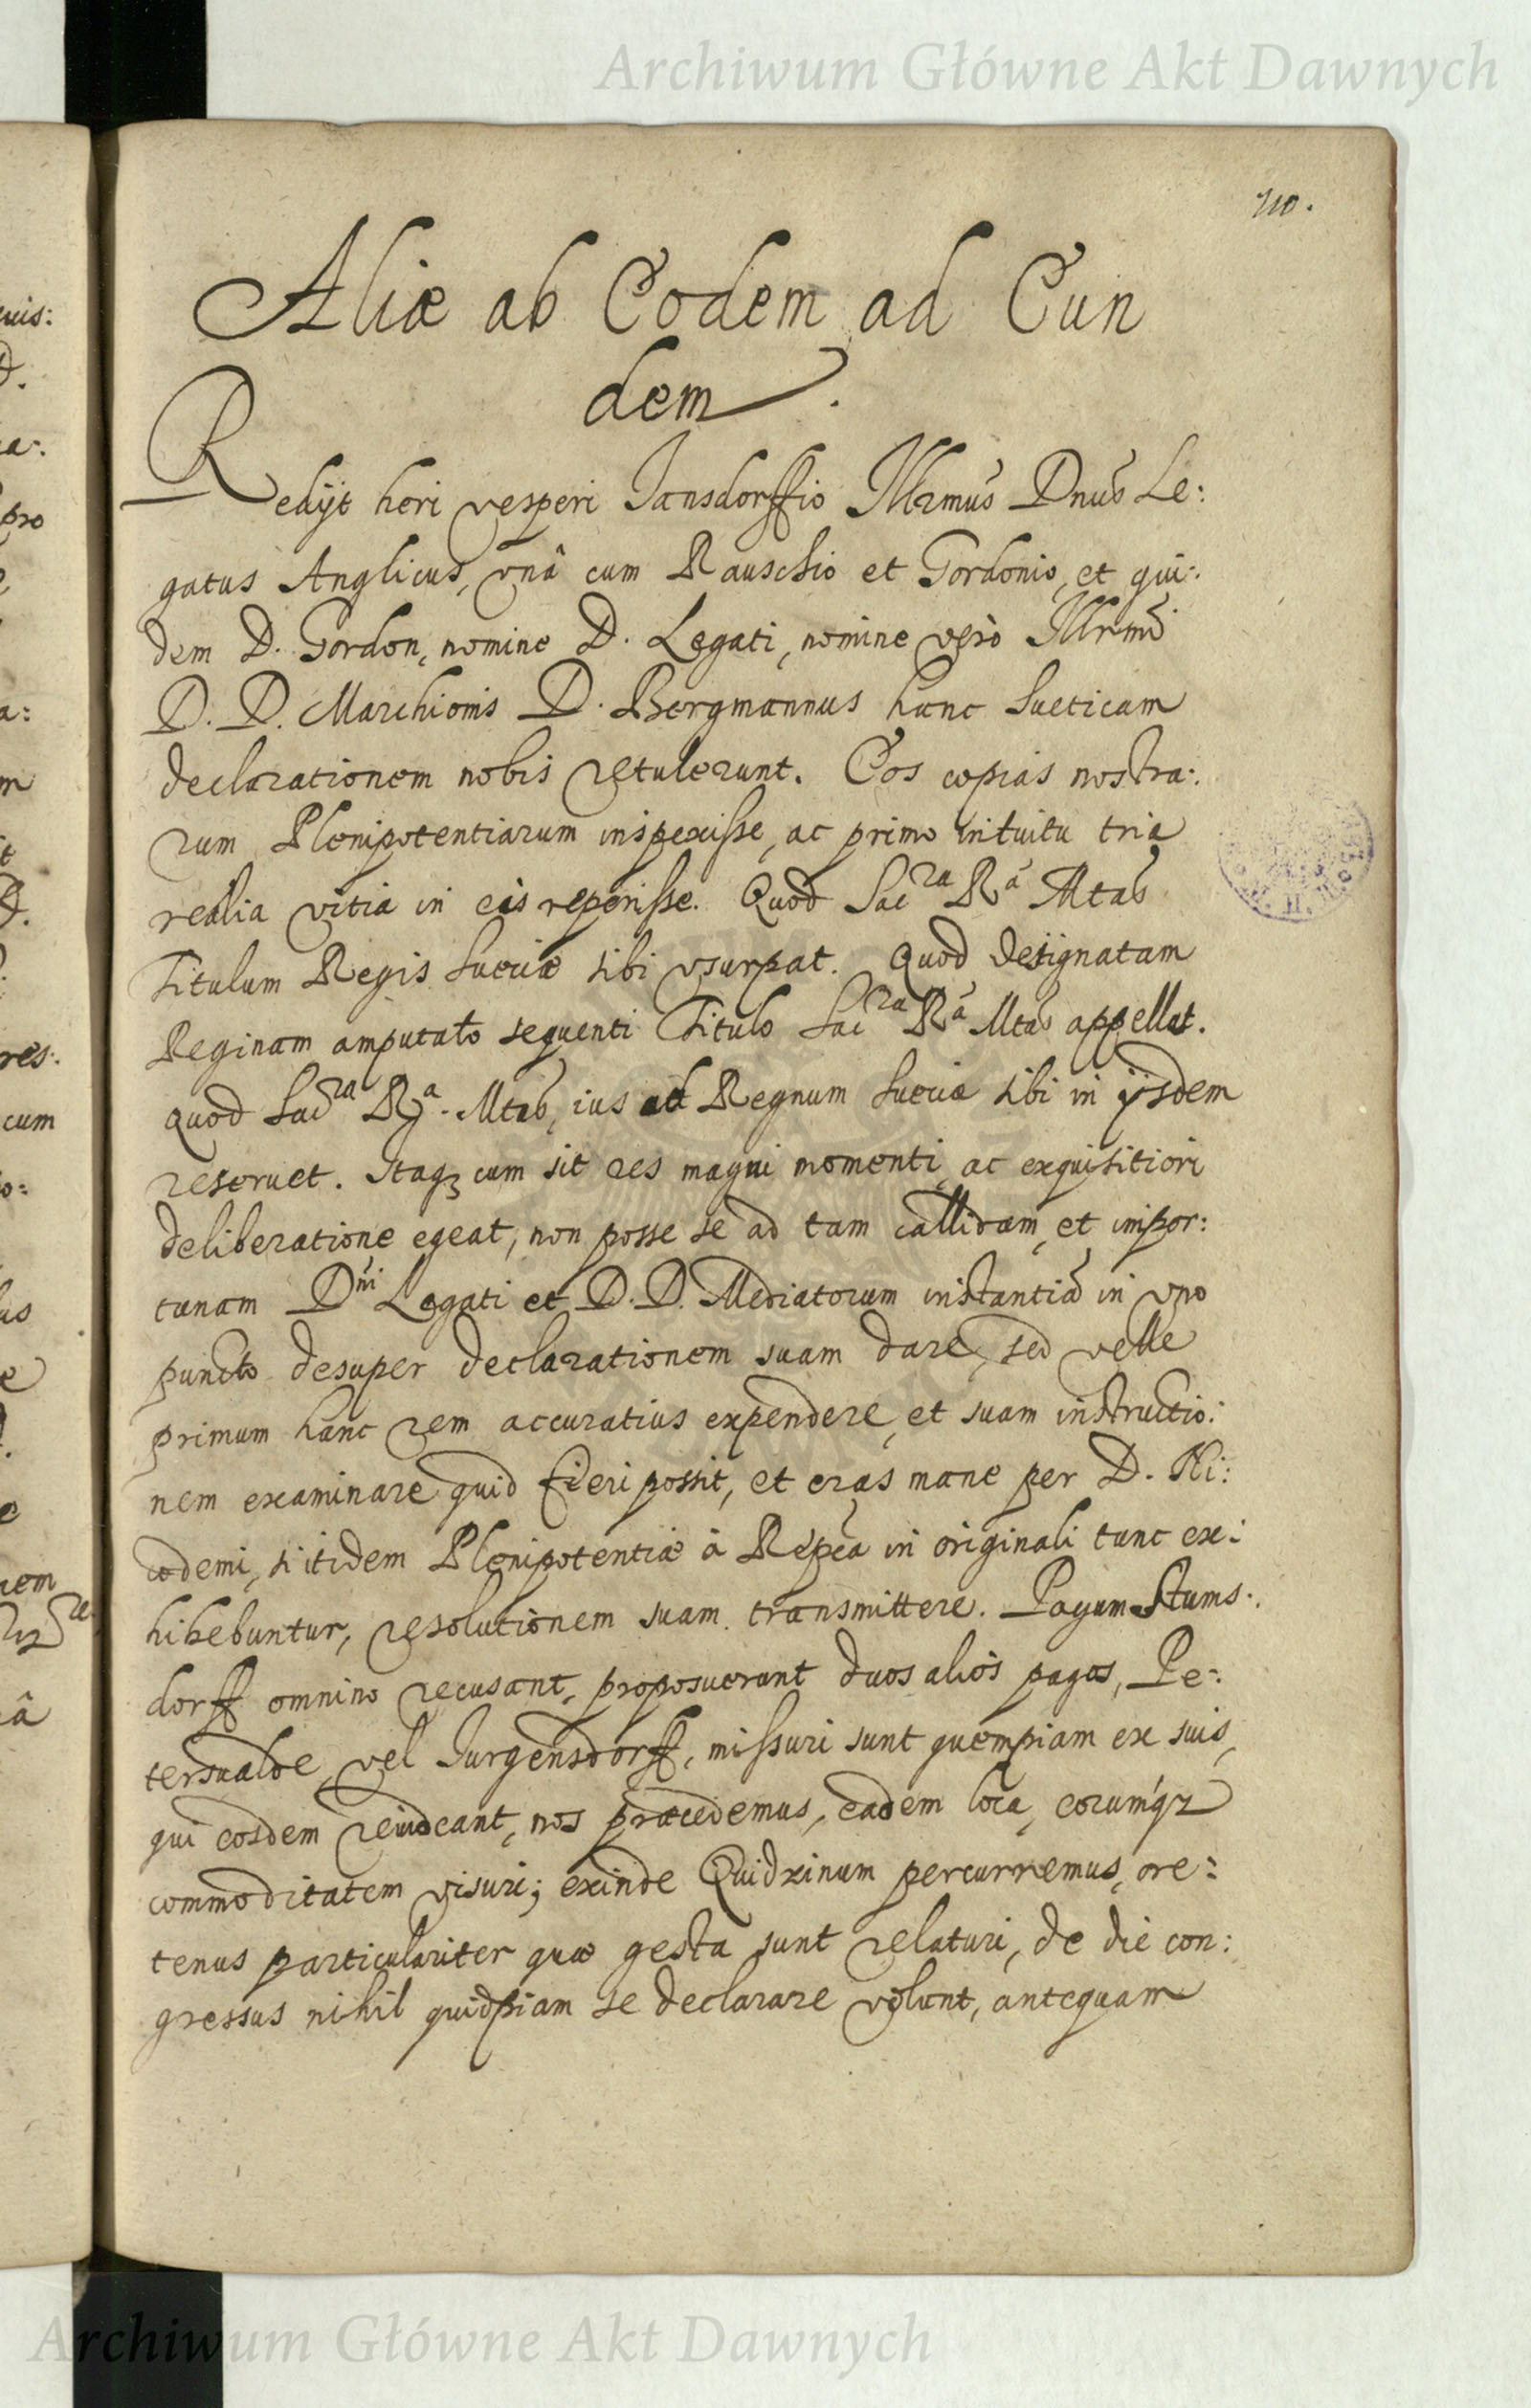 Archiwum Główne Akt Dawnych
110.
Aliæ ab Eodem ad Eun
dem.
Redijt heri vesperi Jansdorffio Illrmus Dnus Le:
gatus Anglicus, vnâ cum Rauschio et Gordonio, et qui:
dem D. Gordon, nomine D. Legati, nomine verò Illrmi
D. D. Marchionis D. Bergmannus hanc Sueticam
declarationem nobis retulerunt. Eos copias nostra:
rum Plenipotentiarum inspexisse, ac primo intuitu tria
realia vitia in eis reperisse. Quod Sacra Ra Mtas
Titulum Regis Sueciæ sibi vsurpat. Quod designatam
Reginam amputato sequenti Titulo Sacra Ra Mtas appellet.
Quod Sacra Ra. Mtas, ius ad Regnum Sueciæ sibi in ijsdem
reseruet. Itaqz cum sit res magni momenti, ac exquisitiori
deliberatione egeat, non posse se ad tam callidam, et impor:
tunam Dni Legati et D. D. Mediatorum instantiã in vno
puncto desuper declarationem suam dare, sed velle
primum hanc rem accuratius expendere, et suam instructio:
nem examinare quid fieri possit, et cras mane per D. Ni:
codemi, si itidem Plenipotentiæ à Repca in originali tunc ex:
hibebuntur, resolutionem suam transmittere. Pagum Stums:
dorff omnino recusant, proposuerunt duos alios pagos, Pe:
tersualde, vel Jurgensdorff, missuri sunt quempiam ex suis,
qui eosdem reuideant, nos præcedemus, eadem loca, eorumqz
commoditatem visuri; exinde Quidzinum percurremus, ore:
tenus particulariter quæ gesta sunt relaturi, de die con:
gressus nihil quidpiam se declarare volunt, antequam
Archiwum Główne Akt Dawnych